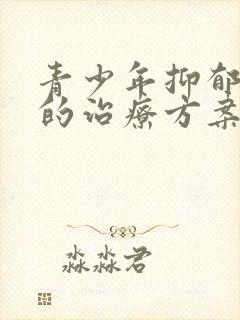 青少年抑郁
的治疗方案
淼淼君